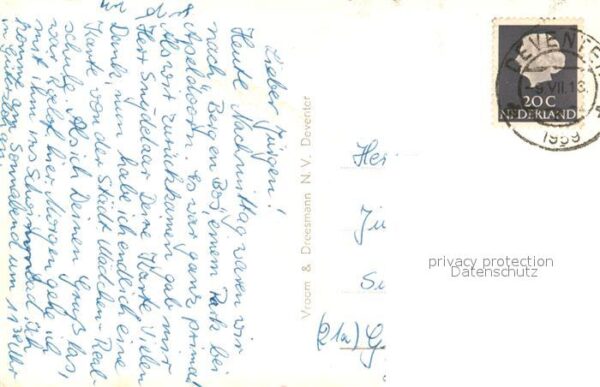 Lieber Jürgen!
Heute Nachmittag waren wir
nach Berg en Bos, einem Park bei
Apeldoorn. Es war ganz prima!
Als wir zurückkamen gab mir
Herr Snijdelaar Deine Karte. Vielen
Dank, nun habe ich endlich eine
Karte von der Städt. Mädchen-Real-
schule. Als ich Deinen Gruß las,
war hier. Morgen gehe ich
mit ihm ins und ich
komme am Sonnabend um 11 Uhr
in an.
Vroom & Dreesmann N.V. Deventer
DEVENTER
-9.VII.13
1959
20C
NEDERLAND
Her
Jü
(21a) G
privacy protection
Datenschutz